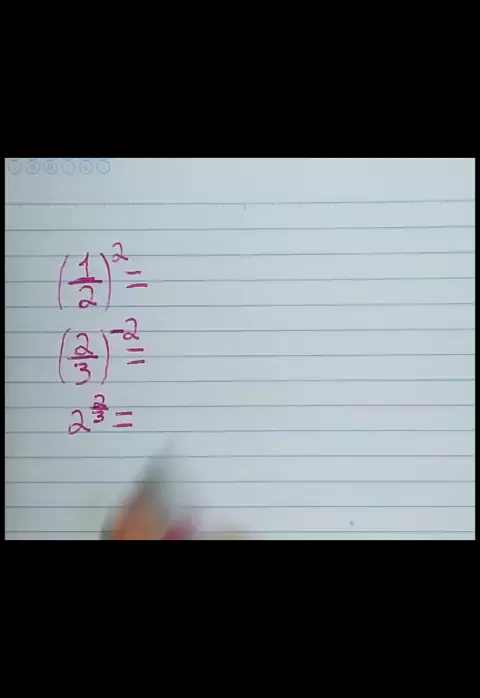 (1/2)² =
(2/3)⁻² =
2^(2/3) =